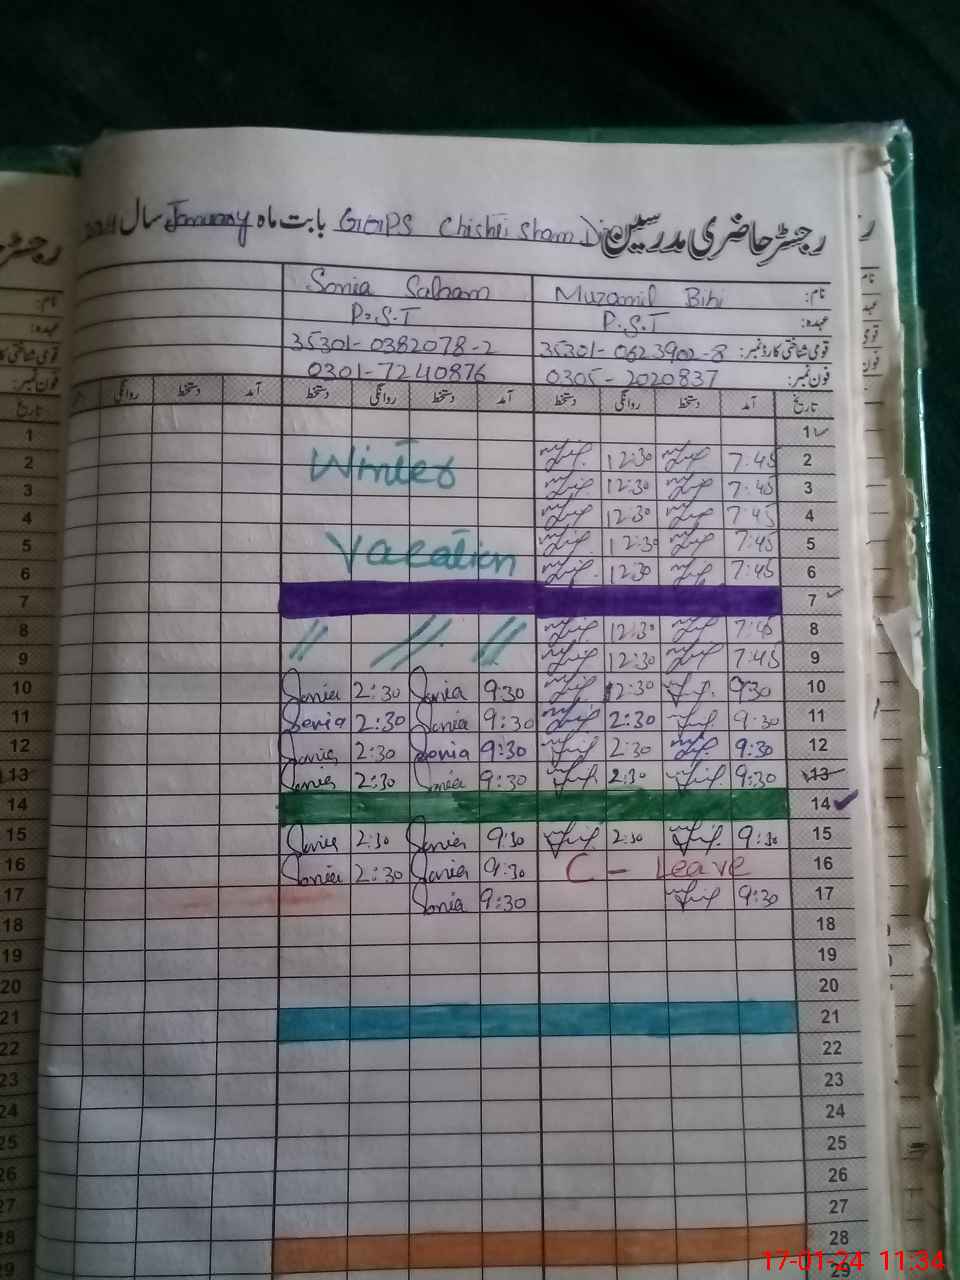 رجسٹر حاضری مدرسین GGPS Chishti Sham Din بابت ماہ January سال 2024
نام: Muzamil Bibi Sonia Salaam
عہدہ: P.S.T P.S.T
قومی شناختی کارڈ نمبر: 35301-0623902-8 35301-0382078-2
فون نمبر: 0305-2020837 0301-7240876
تاریخ آمد دستخط روانگی دستخط آمد دستخط روانگی دستخط آمد دستخط روانگی
1
2 7:45 12:30 Winter
3 7:45 12:30
4 7:45 12:30
5 7:45 12:30 Vacation
6 7:45 12:30
7
8 7:45 12:30 // // //
9 7:45 12:30
10 9:30 12:30 9:30 Sonia 2:30 Sonia
11 9:30 2:30 9:30 Sonia 2:30 Sonia
12 9:30 2:30 9:30 Sonia 2:30 Sonia
13 9:30 2:30 9:30 Sonia 2:30 Sonia
14
15 9:30 2:30 9:30 Sonia 2:30 Sonia
16 C - Leave 9:30 Sonia 2:30 Sonia
17 9:30 9:30 Sonia
18
19
20
21
22
23
24
25
26
27
28
29
رجسٹر
نام:
فون نمبر:
رجسٹر حا
نام:
عہدہ:
قومی شناختی کا
فون نمبر:
تاریخ
1
2
3
4
5
6
7
8
9
10
11
12
13
14
15
16
17
18
19
20
21
22
23
24
25
26
27
28
29
17-01-24 11:34